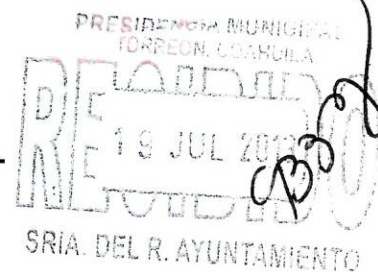 PRESIDENCIA MUNICIPAL
TORREON, COAHUILA
RECIBIDO
19 JUL
SRIA. DEL R. AYUNTAMIENTO